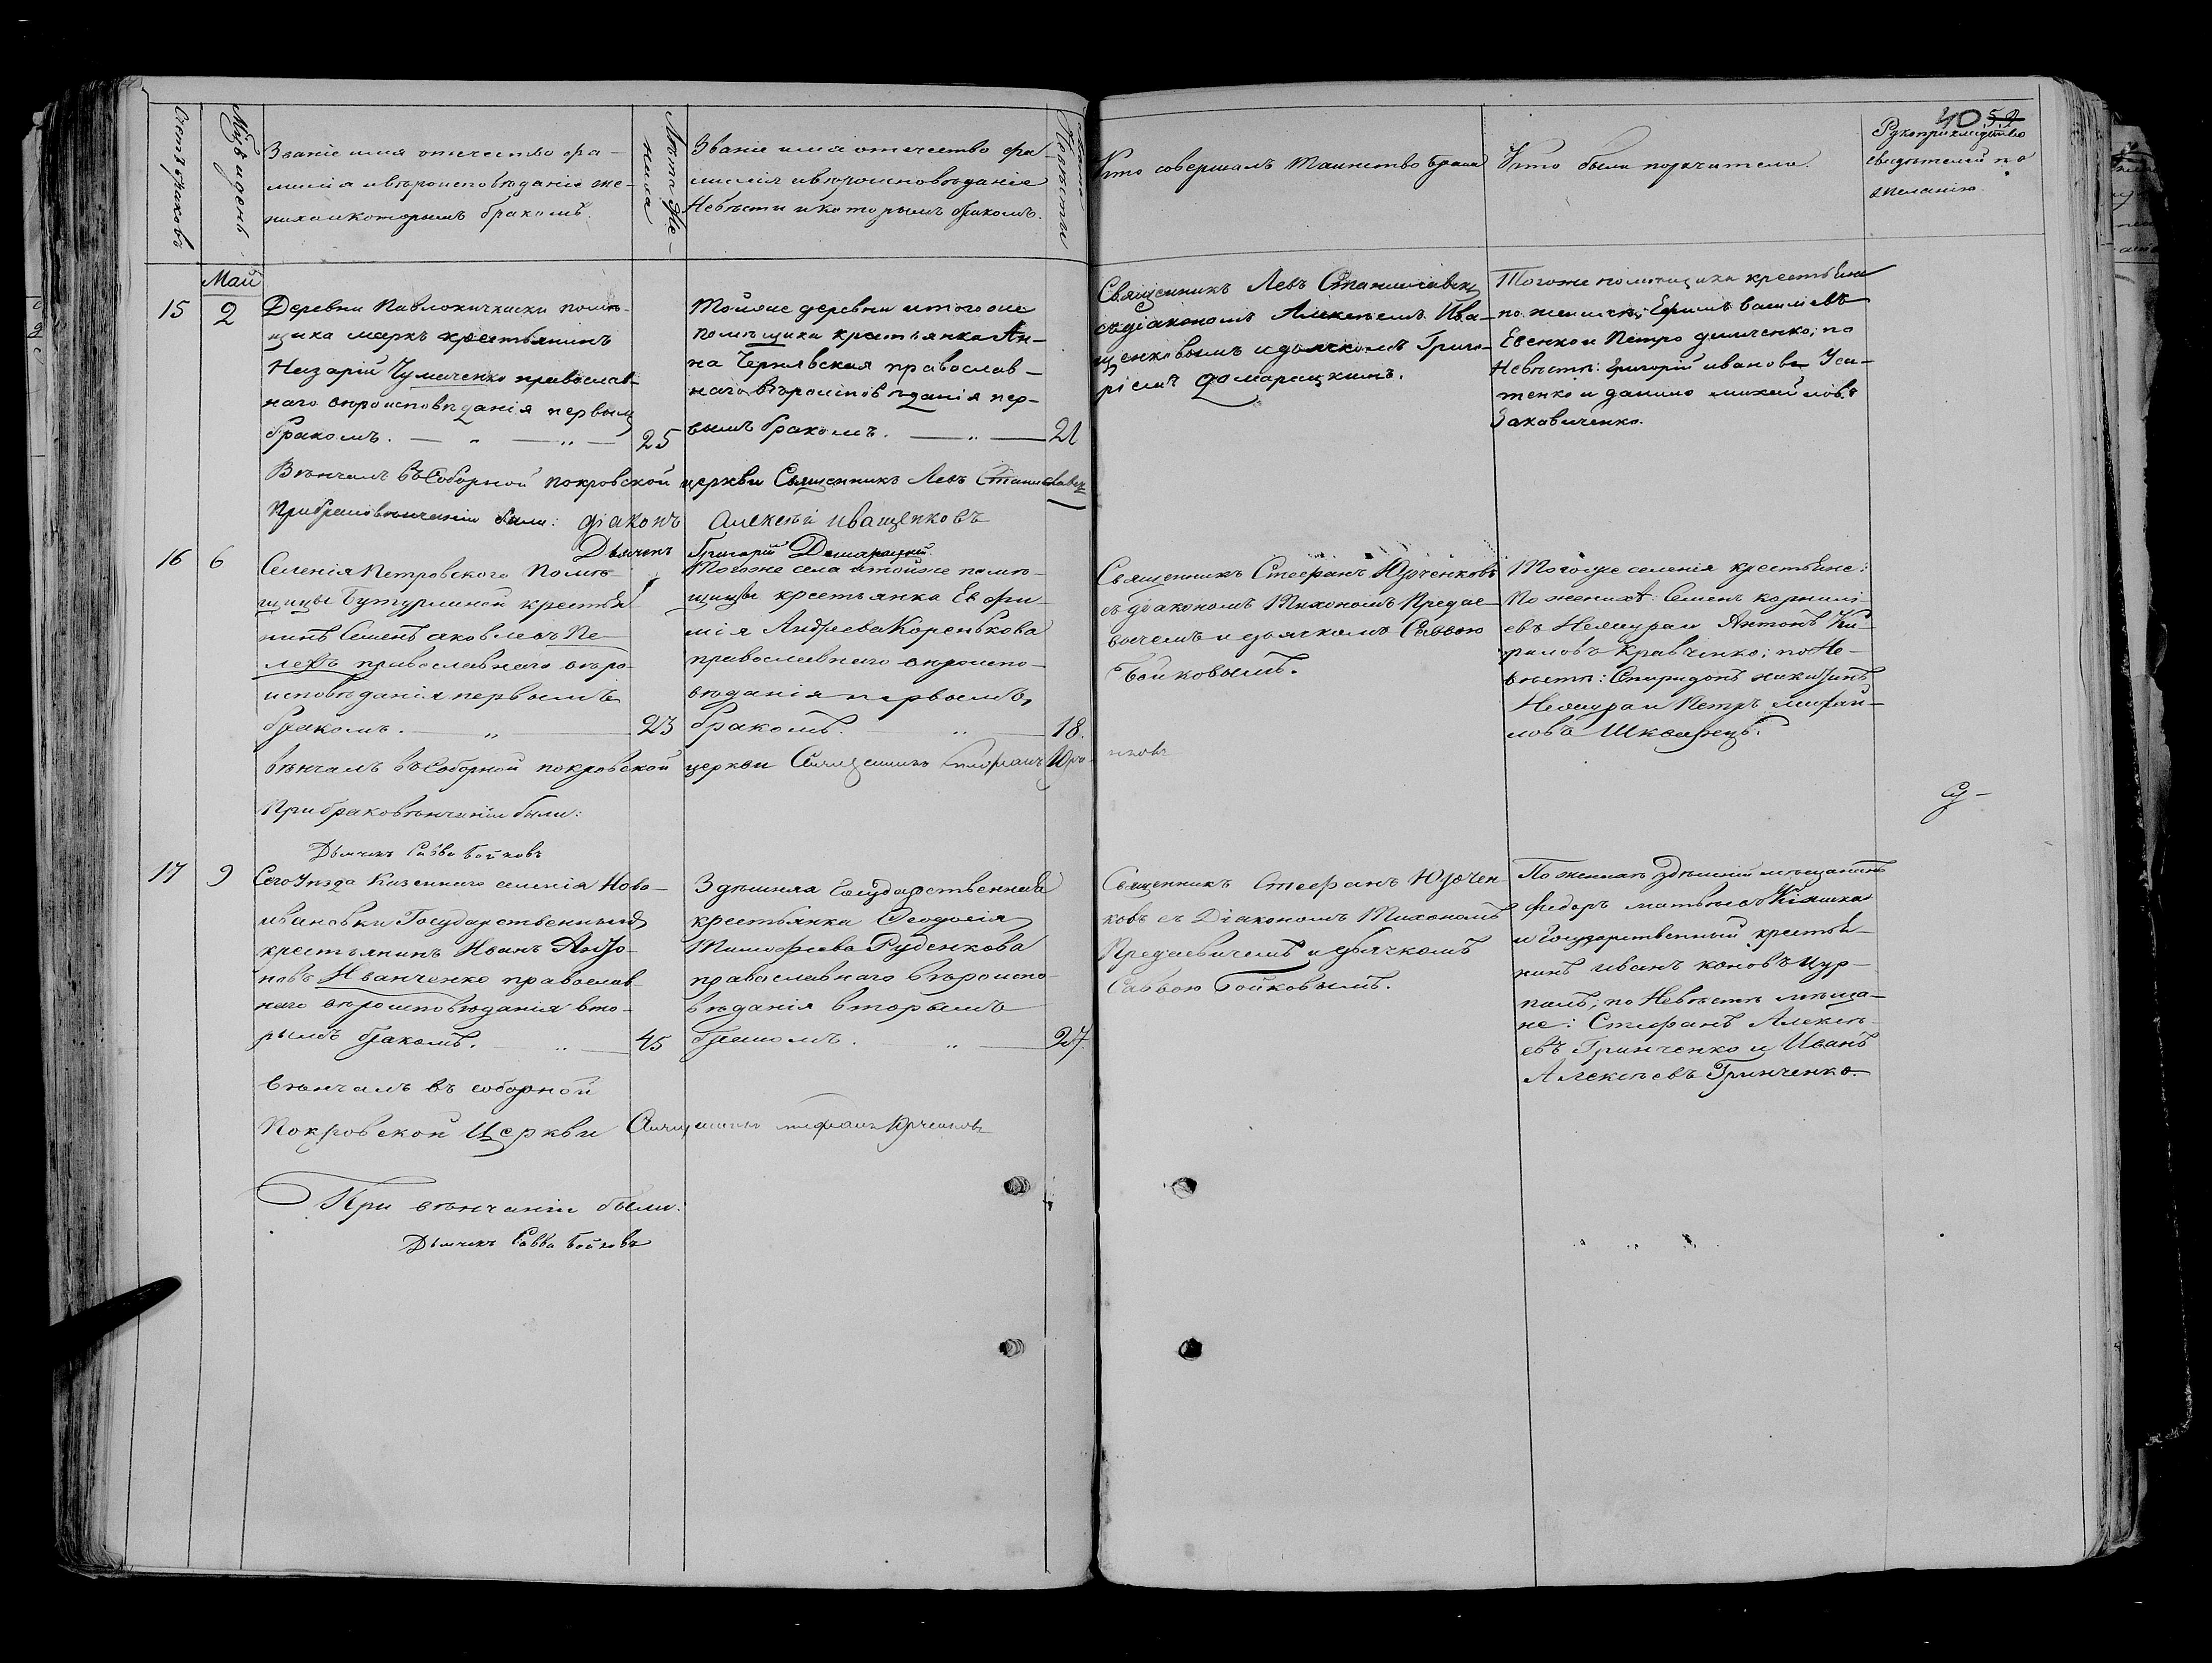 40 52
Счетъ браковъ
Мѣс. и день
Званіе имя отечество фа-
милія и вѣроисповѣданіе же-
ниха и которымъ бракомъ.
Лѣта Же-
ниха
Званіе имя отечество фа-
милія и вѣроисповѣданіе
Невѣсты и которымъ бракомъ.
Лѣта
Невѣсты
Кто совершалъ таинство брака
Кто были поручители.
Рукоприкладство
свидѣтелей по
желанію.
Май
15
2
Деревни Павлокичкаски помѣ-
щика Маркъ крестьянинъ
Назарій Чумаченко православ-
наго вѣроисповѣданія первымъ
бракомъ. — „ — „ — 25
Тойже деревни и тогоже
помѣщика крестьянка Ан-
на Чернявская православ-
наго вѣроисповѣданія пер-
вымъ бракомъ. — „ — 21
Священникъ Левъ Станиславскій
съ діакономъ Алексѣемъ Ива-
щенковымъ и дьячкомъ Григо-
ріемъ Домарацкимъ.
Тогоже помѣщика крестьяне
по женихѣ: Ефимъ Васильевъ
Евенко и Петро Демченко; по
Невѣстѣ: Григорій Ивановъ Уса-
тенко и Данило Михайловъ
Заковиченко.
Вѣнчалъ въ Соборной Покровской церкви Священникъ Левъ Станиславскій
При браковѣнчаніи были: діаконъ Алексѣй Иващенковъ
Дьячекъ Григорій Домарацкій.
16
6
Селенія Петровского Помѣ-
щицы Бутурлиной крестья
нинъ Семенъ Яковлевъ Пе-
лехъ православнаго вѣро-
исповѣданія первымъ
бракомъ. — „ — 23
Тогоже села и тойже помѣ-
щицы крестьянка Евфи-
мія Андреева Коренькова
православнаго вѣроиспо-
вѣданія первымъ
бракомъ. „ — 18.
Священникъ Стефанъ Юрченковъ
съ діакономъ Тихономъ Предае-
вичемъ и дьячкомъ Саввою
Бойковымъ.
Тогоже селенія крестьяне:
По женихѣ: Семенъ Корнилі
евъ Немура и Антонъ Ки-
риловъ Кравченко; по Не-
вѣстѣ: Спиридонъ Никитинъ
Немура и Петръ Михай-
ловъ Шкварецъ.
вѣнчалъ въ Соборной Покровской церкви Священникъ Стефанъ Юрче
нковъ
При браковѣнчаніи были:
Дьячекъ Савва Бойковъ
17
9
Сего Уѣзда Казеннаго селенія Ново-
ивановки Государственный
крестьянинъ Иванъ Андро-
новъ Иванченко православ
наго вѣроисповѣданія вто-
рымъ бракомъ. „ — 45
Здѣшняя Государственная
крестьянка Ѳеодосія
Тимофеева Руденкова
православнаго вѣроиспо-
вѣданія вторымъ
бракомъ. „ — 27.
Священникъ Стефанъ Юрчен
ковъ съ Діакономъ Тихономъ
Предаевичемъ и дьячкомъ
Саввою Бойковымъ.
По женихѣ здѣшній мѣщанинъ
Федоръ Матвѣевъ Кіяшка
и Государственный крестья-
нинъ Иванъ Коновъ Цур-
палъ; по Невѣстѣ мѣща-
не: Стефанъ Алексѣ-
евъ Гринченко и Иванъ
Алексѣевъ Гринченко.
Вѣнчалъ въ соборной
Покровской Церкви Священникъ Стефанъ Юрченковъ
При вѣнчаніи были:
Дьячекъ Савва Бойковъ